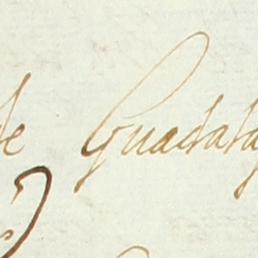 de Guadala